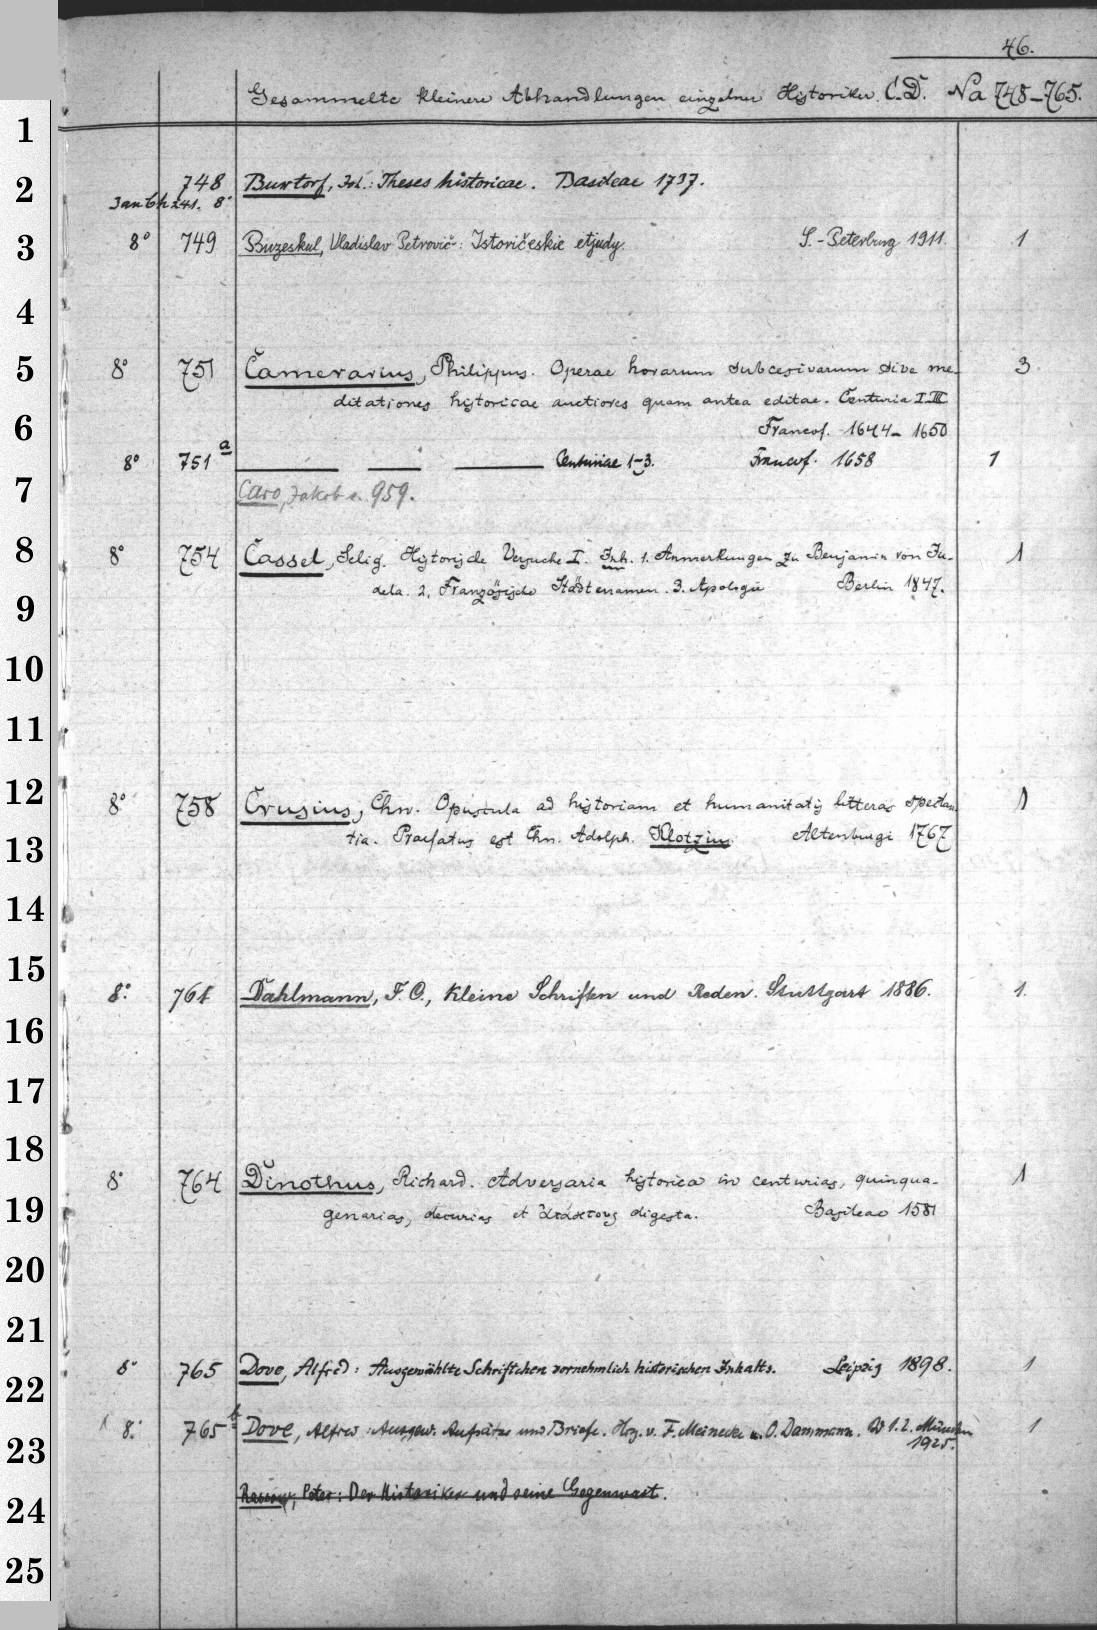 46.
Gesammelte kleinere Abhandlungen einzelner Historiker C.D. Na 748-765.
1
748 Buxtorf, Joh.: Theses historicae. Basileae 1737.
2
241. 8°
3 8° 749 Buzeskul, Vladislav Petrovič: Istoričeskie etjudy. S.-Peterburg 1911. 1
4
5 8° 751 Camerarius, Philippus. Operae horarum subcesivarum sive me-
3
ditationes historicae auctiores quam antea editae. Centuria I-III
6 Francof. 1644-1650
8° 751a Centuriae 1-3. Francof. 1658 1
7 Caro, Jakob s. 959.
8 8° 754 Cassel, Selig. Historische Versuche I. Inh. 1. Anmerkungen zu Benjamin von Tu-
1
9 dela. 2. Französische Städtenamen. 3. Apologie Berlin 1847.
10
11
12 8° 758 Crusius, Chr. Opuscula ad historiam et humanitatis litteras spectan-
1
13 tia. Praefatus est Chr. Adolph. Klotzius. Altenburgi 1767
14
15
8° 761 Dahlmann, F. C., Kleine Schriften und Reden. Stuttgart 1886. 1.
16
17
18
8° 764 Dinothus, Richard. Adversaria historica in centurias, quinqua-
1
19 genarias, decurias et ἀτάκτους digesta. Basileae 1581
20
21
22 8° 765 Dove, Alfred: Ausgewählte Schriftchen vornehmlich historischen Inhalts. Leipzig 1898. 1
8° 765b Dove, Alfred: Ausgew. Aufsätze und Briefe. Hrg. v. F. Meinecke u. O. Dammann. Bd 1.2. München
1
23 1925.
24 Rassow, Peter: Der Historiker und seine Gegenwart.
25